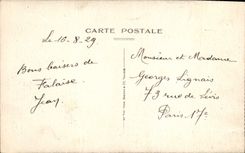 CARTE POSTALE
Le 10-8-29
Bons baisers de
Falaise
Jean
Monsieur et Madame
Georges Lignais
73 rue de
Paris 17e